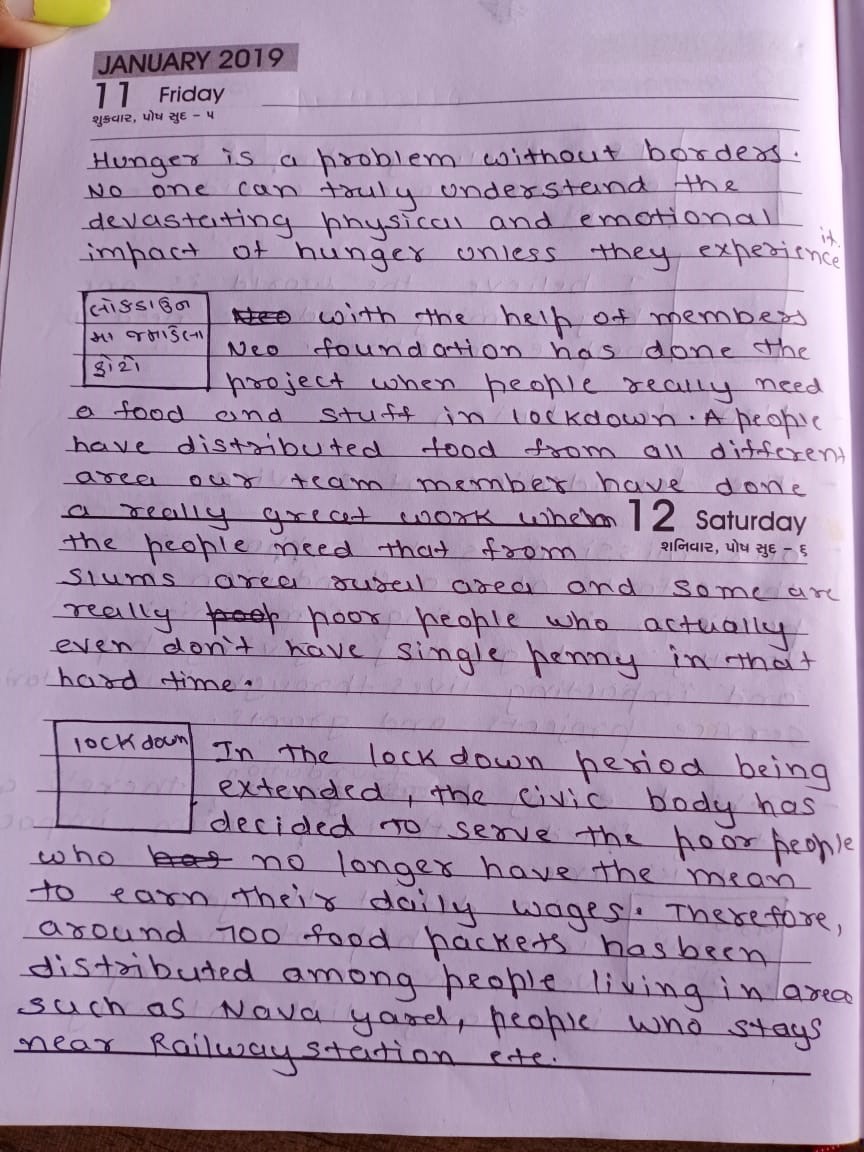 JANUARY 2019
11 Friday
શુક્રવાર, પોષ સુદ - ૫
Hunger is a problem without borders.
No one can truly understand the
devastating physical and emotional
impact of hunger unless they experience it.
લોકડાઉન
મા જમાડેલા
ફોટો
Neo with the help of members
Neo foundation has done the
project when people really need
a food and stuff in lockdown. A people
have distributed food from all different
area our team member have done
a really great work when
12 Saturday
શનિવાર, પોષ સુદ - ૬
the people need that from
slums area rural area and some are
really poor people who actually
even don't have single penny in that
hard time.
lockdown
In the lockdown period being
extended, the civic body has
decided to serve the poor people
who has no longer have the mean
to earn their daily wages. Therefore,
around 700 food packets has been
distributed among people living in area
such as Nava yard, people who stays
near Railway station etc.